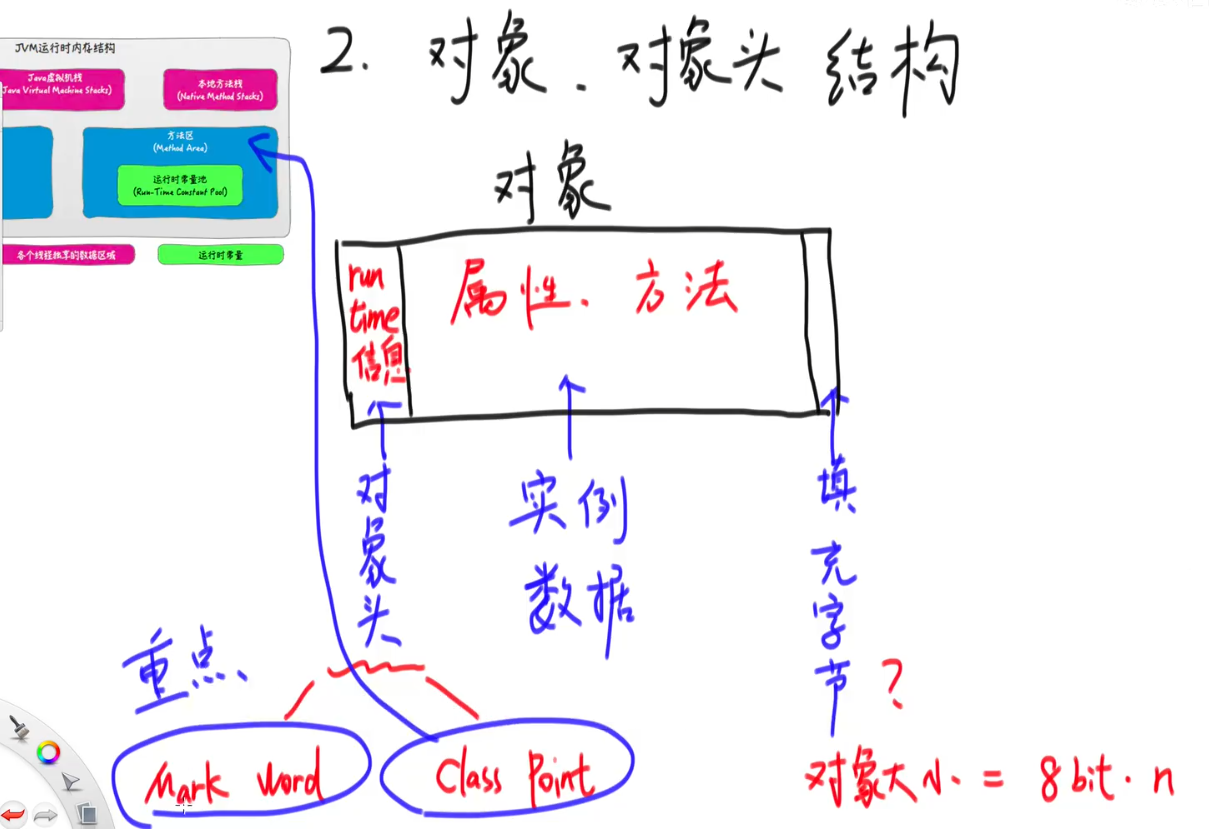 JVM运行时内存结构
Java虚拟机栈
Java Virtual Machine Stacks)
本地方法栈
(Native Method Stacks)
方法区
(Method Area)
运行时常量池
(Run-Time Constant Pool)
各个线程独享的数据区域
运行时常量
2. 对象、对象头 结构
对象
run
time
信息
属性、方法
对象头
实例
数据
填充字节
?
重点
Mark Word
Class Point
对象大小 = 8bit·n